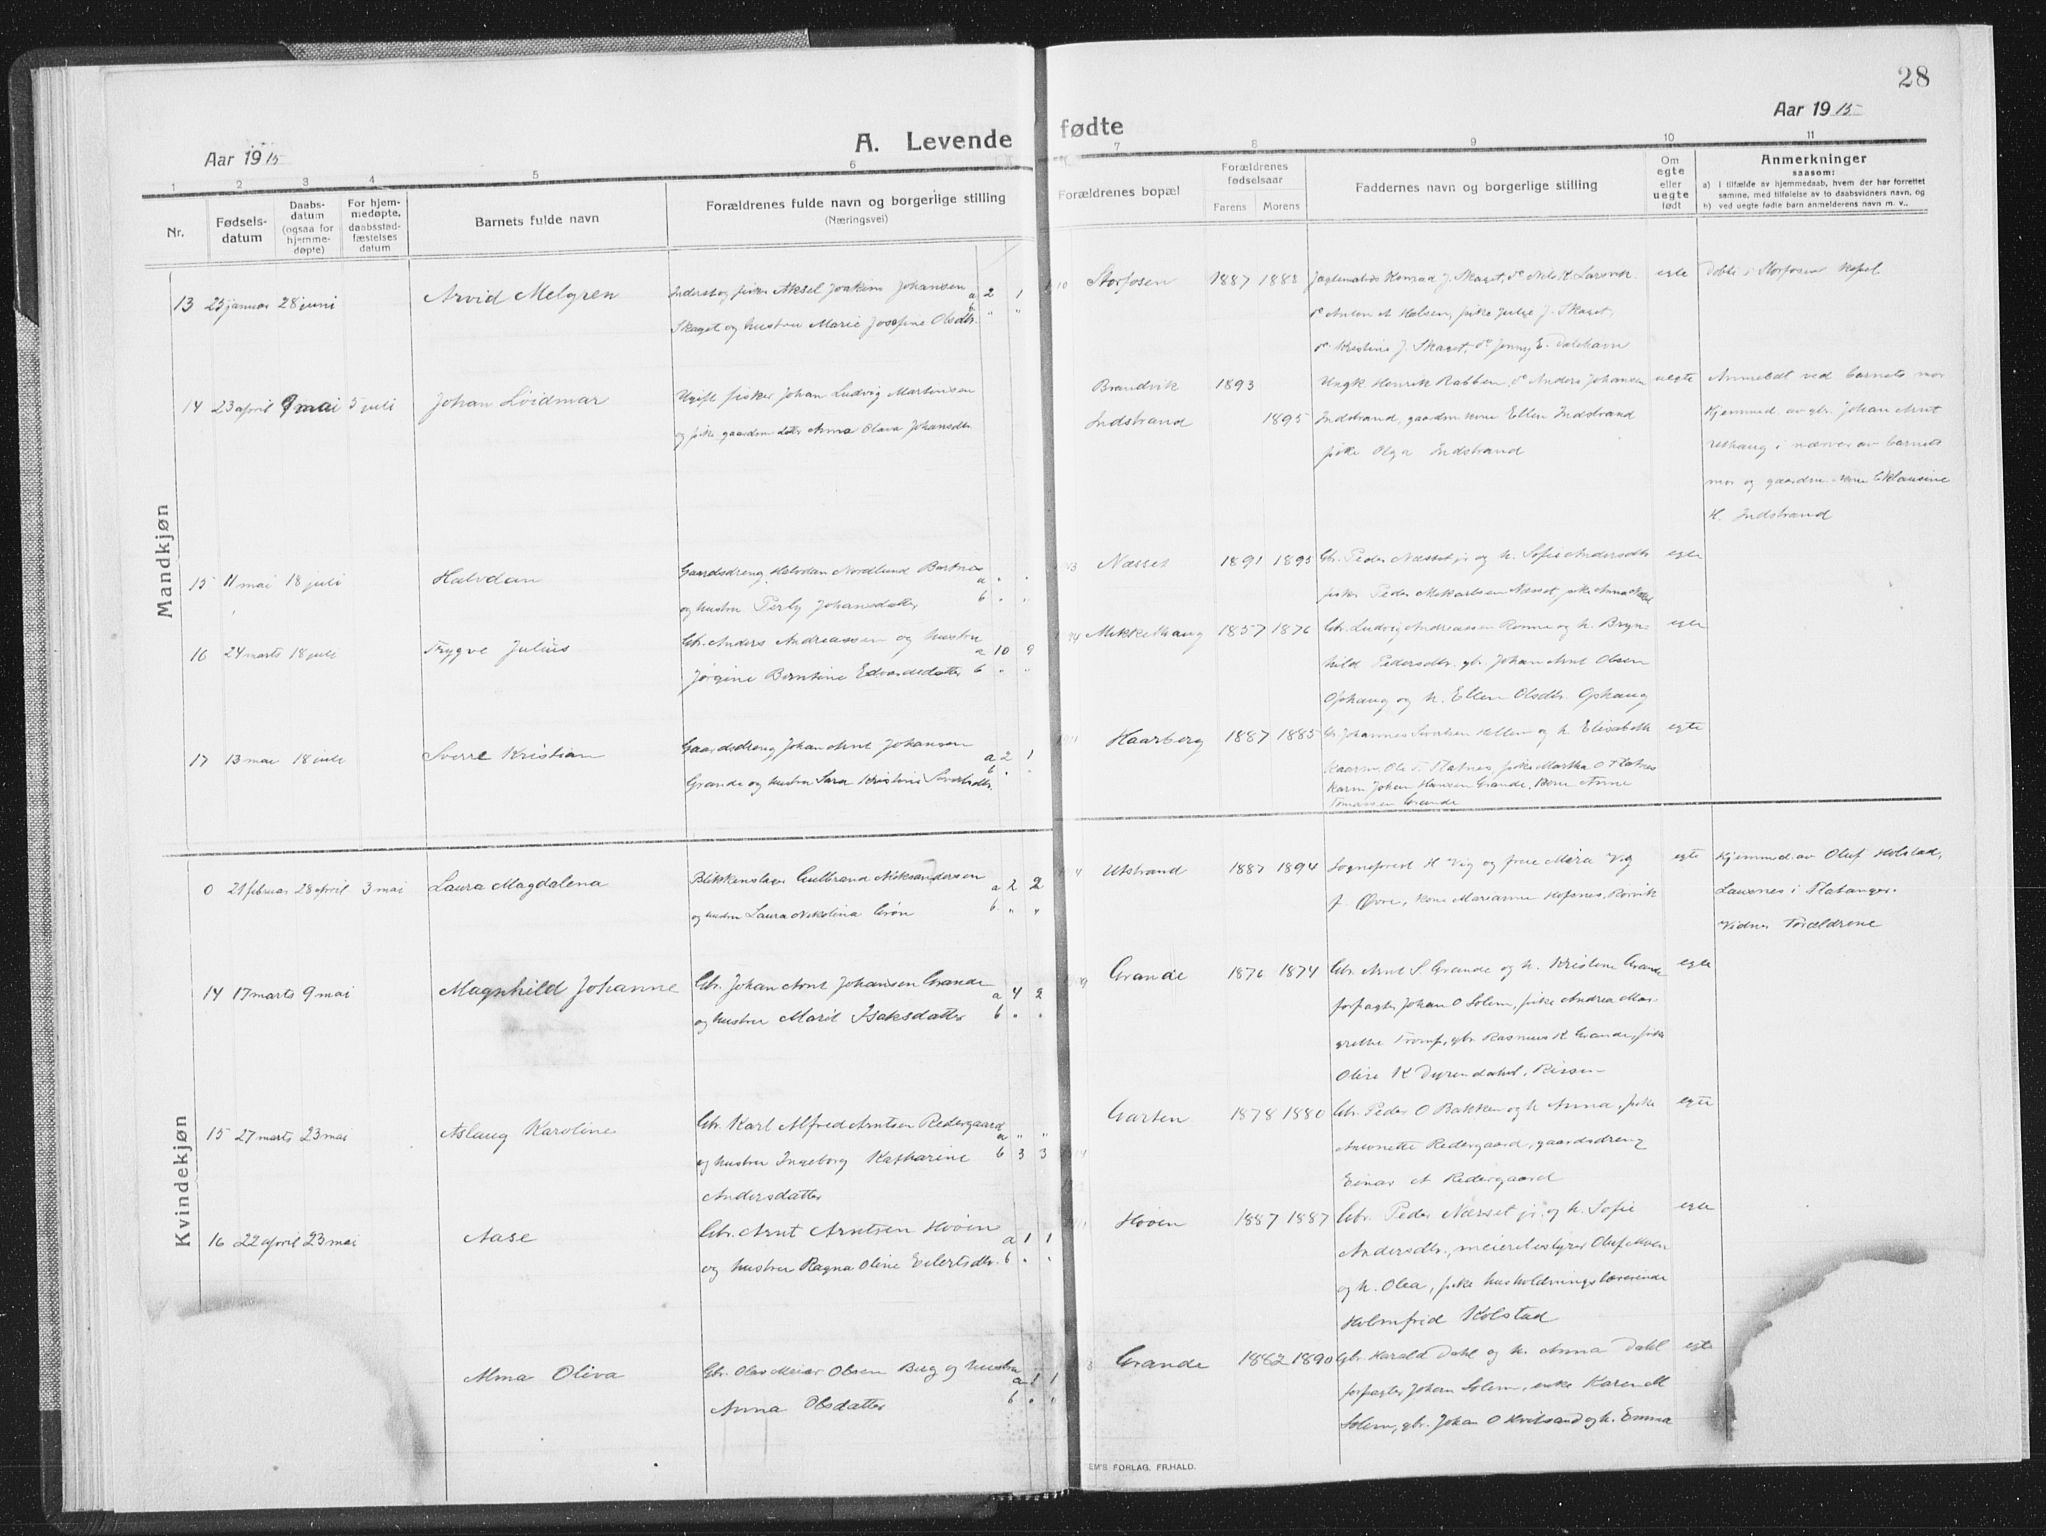 28
Aar 1915
A. Levende
fødte
Aar 1915
1 2 3 4 5 6
7 8 9 10 11
Nr.
Fødsels-
datum
Daabs-
datum
(ogsaa for
hjemme-
døpte)
For hjem-
medøpte,
daabsstad-
fæstelses
datum
Barnets fulde navn
Forældrenes fulde navn og borgerlige stilling
(Næringsvei)
Forældrenes bopæl
Forældrenes
fødselsaar
Farens Morens
Faddernes navn og borgerlige stilling
Om
egte
eller
uegte
født
Anmerkninger
saasom:
a) i tilfælde av hjemmedaab, hvem der har forrettet
samme, med tilføielse av to daabsvidners navn, og
b) ved uegte fødte barn anmelderens navn m. v..
Mandkjøn
13 25 januar 28 juni Arvid Melgren Aksel Joakim Johansen a 2 1
Skaget og hustru Marie Josefine Olsdtr.
Storfosen 1887 1888 Konrad J. Skaget, do Nils K. Larsvik egte Døbt i Storfosen kapel
do Anton A Halsen, pike Julie J. Skaget,
do Kristine J. Skaget, do Jenny E.
14 23 april 9 mai 5 juli Johan Loidmar Ugift fisker Johan Ludvig Martinsen
og pike, gaardm. datter Anna Olava Johansdtr.
Brandvik 1893 Ungk. Henrik Rabben, do Anders Johansen uegte Anmeldt ved barnets mor
Indstrand 1895 Indstrand, gaardm. kone Ellen Indstrand Hjemmed. av gbr. Johan Arnt
pike Olga Indstrand
i nærvær av barnets
mor og gaardm. kone
H. Indstrand
15 11 mai 18 juli Halvdan Gaardsdreng Halvdan Nordlund a
og hustru Perly Johansdatter b
Næsset 1891 1895 Gbr. Peder Næsset jr og h. Sofie Andersdtr egte
16 24 marts 18 juli Trygve Julius Gbr. Anders Andreassen og hustru a 10 9
Jørgine Berntine Edvardsdatter b
Mikkelhaug 1857 1876 Gbr. Ludvig Andreassen og h. Bryn- egte
hild Pedersdtr. gbr. Johan Arnt Olsen
Ophaug og h. Ellen Olsdtr. Ophaug
17 13 mai 18 juli Sverre Kristian Gaardsdreng Johan Arnt Johansen a 2 1
Grande og hustru Sara Kristine Sivertsdtr. b
Haarberg 1887 1885 Johannes og h. Elisabeth egte
Kaarm. Ole T. Flatnes, pike Martha O Flatnes
Karm. Johan Hansen Grande, Anne
Tomassen Grande
Kvindekjøn
0 21 februar 28 april 3 mai Laura Magdalena Blikkenslager Gulbrand Aleksandersen a 2 2
og hustru Laura Nikolina Grøn b
Utstrand 1887 1894 Sogneprest H Vig og frue Mira Vig egte Hjemmed. av Oluf Kolstad,
f. Øvre, kone Marianne Hofsnes, Rørvik Lauvsnes i Flatanger.
Vidner Forældrene
14 17 marts 9 mai Magnhild Johanne Gbr. Johan Arnt Johansen Grande a 4 2
og hustru Marit Isaksdatter b
Grande 1876 1874 Gbr. Arnt S Grande og h. Kristine Grande egte
forpagter Johan O Solem, pike Andrea Mar-
grethe Tromp, gbr. Rasmus K Grande, pike
Olise K Dyrendahl, Rissen
15 27 marts 23 mai Aslaug Karoline Gbr. Karl Alfred Arntsen Redergaard a
og hustru Ingeborg Katharine b 3 3
Andersdatter
Garten 1878 1880 Gbr. Peder O Bakken og h. Anna, pike egte
Antonette Redergaard, gaardsdreng
Einar A Redergaard
16 22 april 23 mai Aase Gbr. Arnt Arntsen Hoven a 1 1
og hustru Ragna Oline Eilertsdtr. b
Hoven 1887 1887 Gbr. Peder Næsset jr. og h. Sofie egte
Andersdtr., meieribestyrer Oluf Moen
og h. Olea, pike husholdningslærerinde
Holmfrid Kolstad
Alma Oliva Gbr. Olav Meier Olsen Berg og hustru a 1 1
Anna Olsdatter b
Grande 1882 1890 Gbr. Harald Dahl og h. Anna Dahl egte
forpagter Johan Solem, enke Karen M
Solem, gbr. Johan O Kvilsand og h. Emma
EM'S FORLAG. FR.HALD.